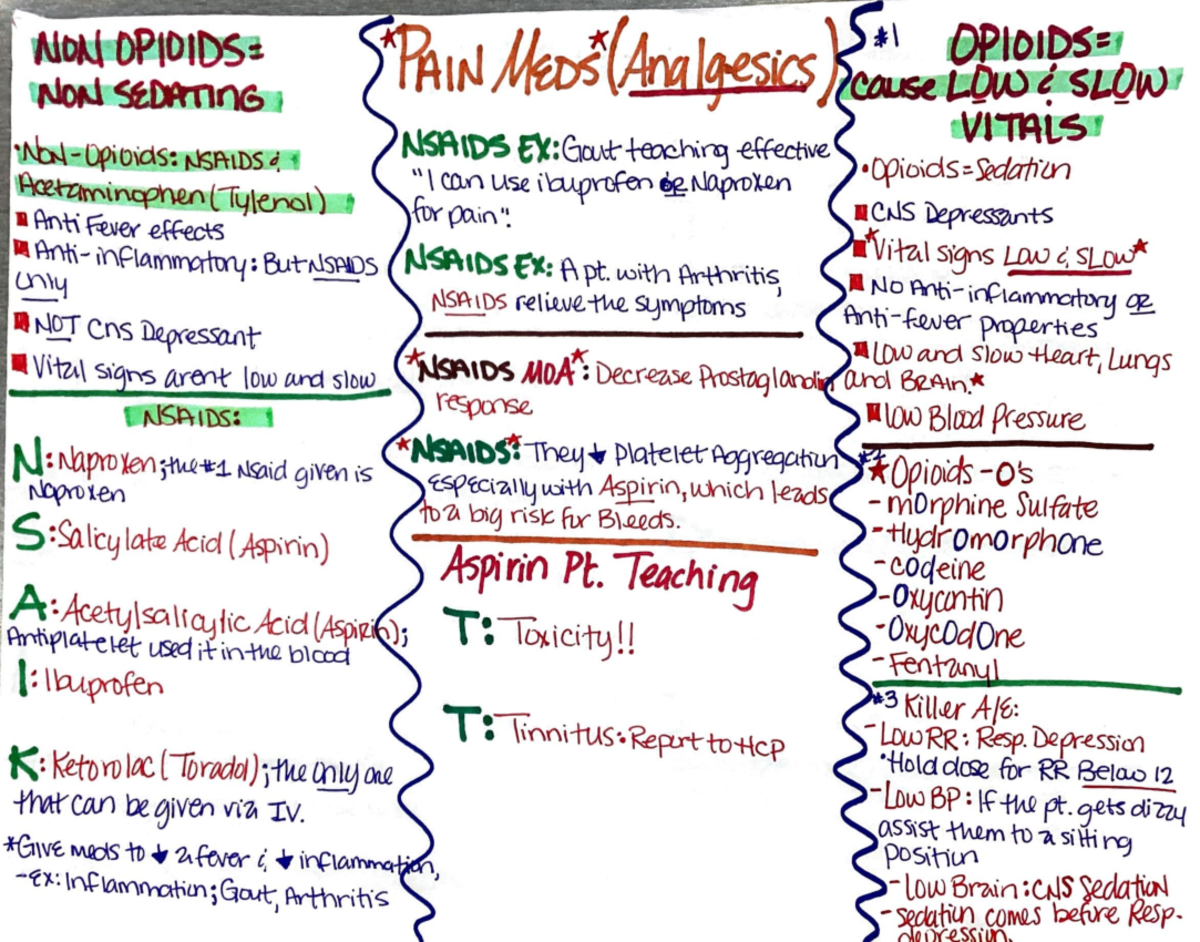 NON OPIOIDS=
NON SEDATING
•Non-Opioids: NSAIDS &
Acetaminophen (Tylenol)
Anti Fever effects
Anti-inflammatory: But NSAIDS
only
NOT Cns Depressant
Vital signs arent low and slow
NSAIDS:
N: Naproxen; the #1 Nsaid given is
Naproxen
S: Salicylate Acid (Aspirin)
A: Acetylsalicylic Acid (Aspirin);
Antiplatelet used it in the blood
I: Ibuprofen
K: Ketorolac (Toradol); the only one
that can be given via IV.
*Give meds to ↓ a fever & ↓ inflammation,
-Ex: Inflammation; Gout, Arthritis
*PAIN MEDS* (Analgesics)
NSAIDS EX: Gout teaching effective
"I can use ibuprofen or Naproxen
for pain".
NSAIDS EX: A pt. with Arthritis,
NSAIDS relieve the symptoms
*NSAIDS MOA*: Decrease Prostaglandin
response
*NSAIDS*: They ↓ Platelet Aggregation
especially with Aspirin, which leads
to a big risk for Bleeds.
Aspirin Pt. Teaching
T: Toxicity!!
T: Tinnitus: Report to HCP
#1 OPIOIDS=
cause LOW & SLOW
VITALS
•Opioids = Sedation
CNS Depressants
*Vital signs Low & SLOW*
No Anti-inflammatory OR
Anti-fever properties
Low and slow Heart, Lungs
and BRAin*
Low Blood Pressure
#2
*Opioids - O's
-mOrphine Sulfate
-HydrOmOrphone
-cOdeine
-Oxycontin
-OxycOdOne
-Fentanyl
#3 Killer A/E:
-Low RR: Resp. Depression
•Hold dose for RR Below 12
-Low BP: If the pt. gets dizzy
assist them to a sitting
position
-Low Brain: CNS Sedation
-sedation comes before Resp.
depression.